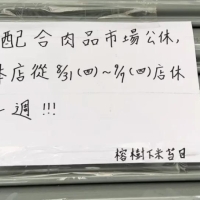 配合肉品市場公休,
本店從8/31(四)~9/7(四)店休
一週!!!
榕樹下米苔目